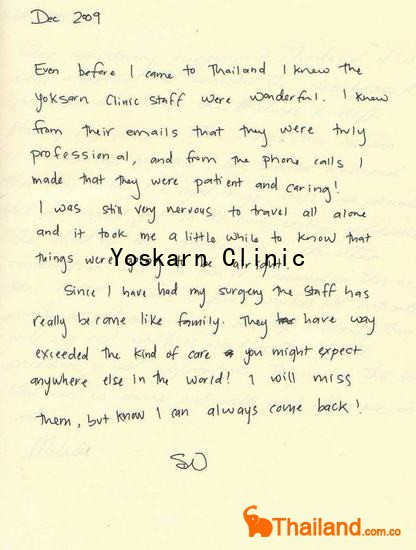 Dec 2009
Even before I came to Thailand I knew the
Yoksarn Clinic staff were wonderful. I knew
from their emails that they were truly
professional, and from the phone calls I
made that they were patient and caring!
I was still very nervous to travel all alone
and it took me a little while to know that
things were going to be alright.
Yoskarn Clinic
Since I have had my surgery the staff has
really become like family. They have way
exceeded the kind of care you might expect
anywhere else in the world! I will miss
them, but know I can always come back!
SW
Thailand.com